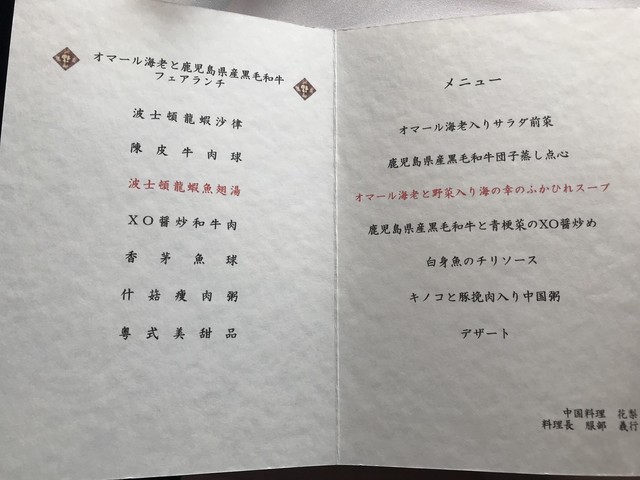 オマール海老と鹿児島県産黒毛和牛
フェアランチ
波士頓龍蝦沙律
陳皮牛肉球
波士頓龍蝦魚翅湯
XO醬炒和牛肉
香茅魚球
什菇瘦肉粥
粵式美甜品
メニュー
オマール海老入りサラダ前菜
鹿児島県産黒毛和牛団子蒸し点心
オマール海老と野菜入り海の幸のふかひれスープ
鹿児島県産黒毛和牛と青梗菜のXO醬炒め
白身魚のチリソース
キノコと豚挽肉入り中国粥
デザート
中国料理　花梨
料理長　服部　義行